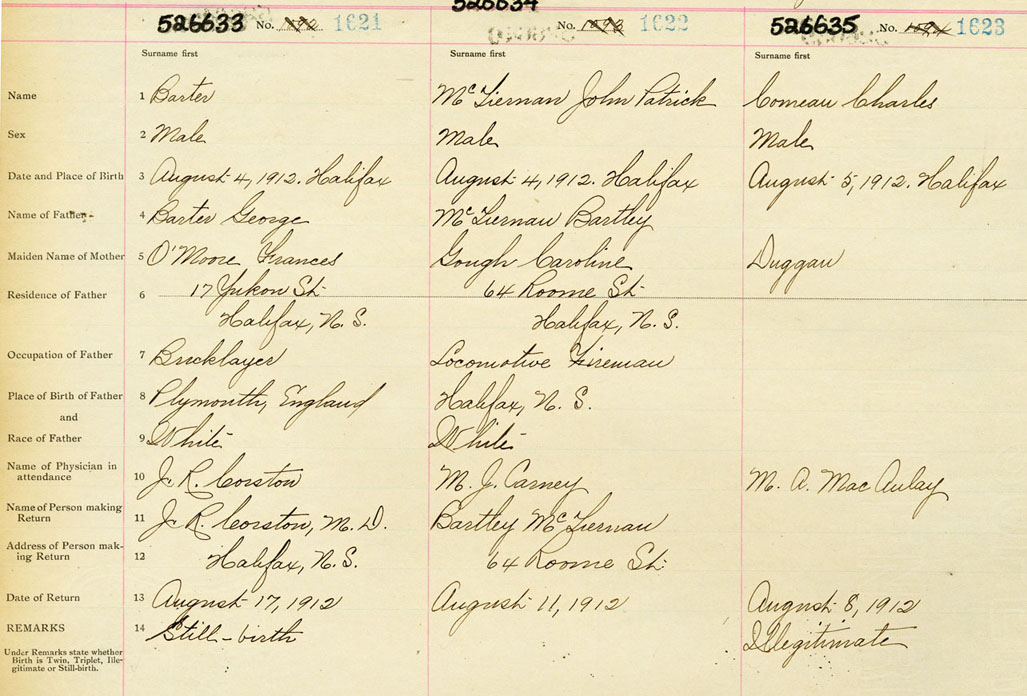 526633 No. 1621
526634 No. 1622
526635 No. 1623
Surname first Surname first Surname first
Name 1 Barter McTiernan John Patrick Comeau Charles
Sex 2 Male Male Male
Date and Place of Birth 3 August 4, 1912. Halifax August 4, 1912. Halifax August 5, 1912. Halifax
Name of Father 4 Barter George McTiernan Bartley
Maiden Name of Mother 5 O'Moore Frances Gough Caroline Duggan
Residence of Father 6 17 Yukon St. 64 Roome St.
Halifax, N.S. Halifax, N.S.
Occupation of Father 7 Bricklayer Locomotive Fireman
Place of Birth of Father 8 Plymouth, England Halifax, N.S.
and
Race of Father 9 White White
Name of Physician in
attendance 10 J. R. Corston M. J. Carney M. A. MacAulay
Name of Person making
Return 11 J. R. Corston, M.D. Bartley McTiernan
Address of Person mak-
ing Return 12 Halifax, N.S. 64 Roome St.
Date of Return 13 August 17, 1912 August 11, 1912 August 8, 1912
REMARKS 14 Still-birth Illegitimate
Under Remarks state whether
Birth is Twin, Triplet, Ille-
gitimate or Still-birth.